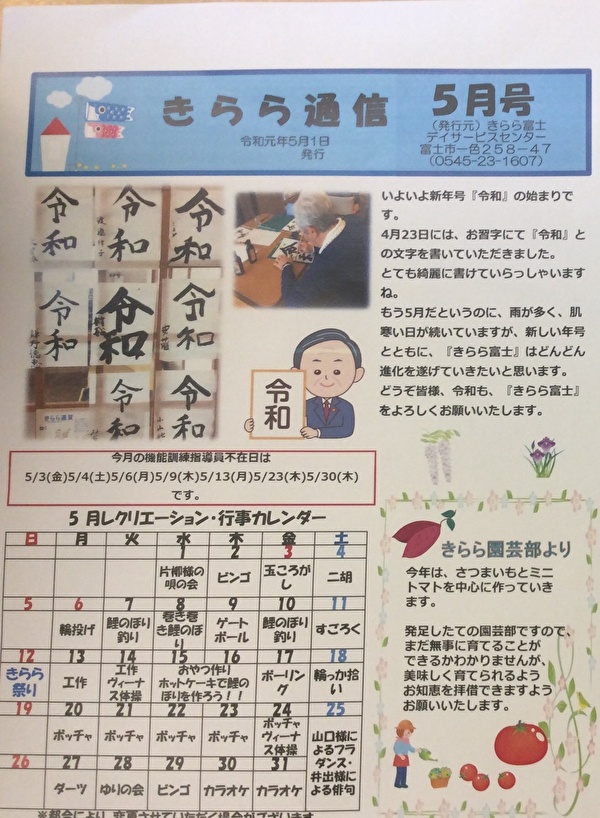 きらら通信
5月号
令和元年5月1日
発行
(発行元)きらら富士
デイサービスセンター
富士市一色258-47
(0545-23-1607)
令和
令和
令和
令和
令和
令和
令和
令和
令和
いよいよ新年号『令和』の始まりで
す。
4月23日には、お習字にて『令和』と
の文字を書いていただきました。
とても綺麗に書けていらっしゃいます
ね。
もう5月だというのに、雨が多く、肌
寒い日が続いていますが、新しい年号
とともに、『きらら富士』はどんどん
進化を遂げていきたいと思います。
どうぞ皆様、令和も、『きらら富士』
をよろしくお願いいたします。
今月の機能訓練指導員不在日は
5/3(金)5/4(土)5/6(月)5/9(木)5/13(月)5/23(木)5/30(木)
です。
5月レクリエーション・行事カレンダー
日 月 火 水 木 金 土
1 2 3 4
片柳様の唄の会 ビンゴ 玉ころがし 二胡
5 6 7 8 9 10 11
輪投げ 鯉のぼり釣り 巻き巻き鯉のぼり ゲートボール 鯉のぼり釣り すごろく
12 13 14 15 16 17 18
きらら祭り 工作 工作ヴィーナス体操 おやつ作りホットケーキで鯉のぼりを作ろう!! ボーリング 輪っか拾い
19 20 21 22 23 24 25
ボッチャ ボッチャ ボッチャ ボッチャ ボッチャヴィーナス体操 山口様によるフラダンス・井出様による俳句
26 27 28 29 30 31
ダーツ ゆりの会 ビンゴ カラオケ カラオケ
※都合により、変更させていただく場合がございます
きらら園芸部より
今年は、さつまいもとミニ
トマトを中心に作っていき
ます。
発足したての園芸部ですので、
まだ無事に育てることが
できるかわかりませんが、
美味しく育てられるよう
お知恵を拝借できますよう
お願いいたします。